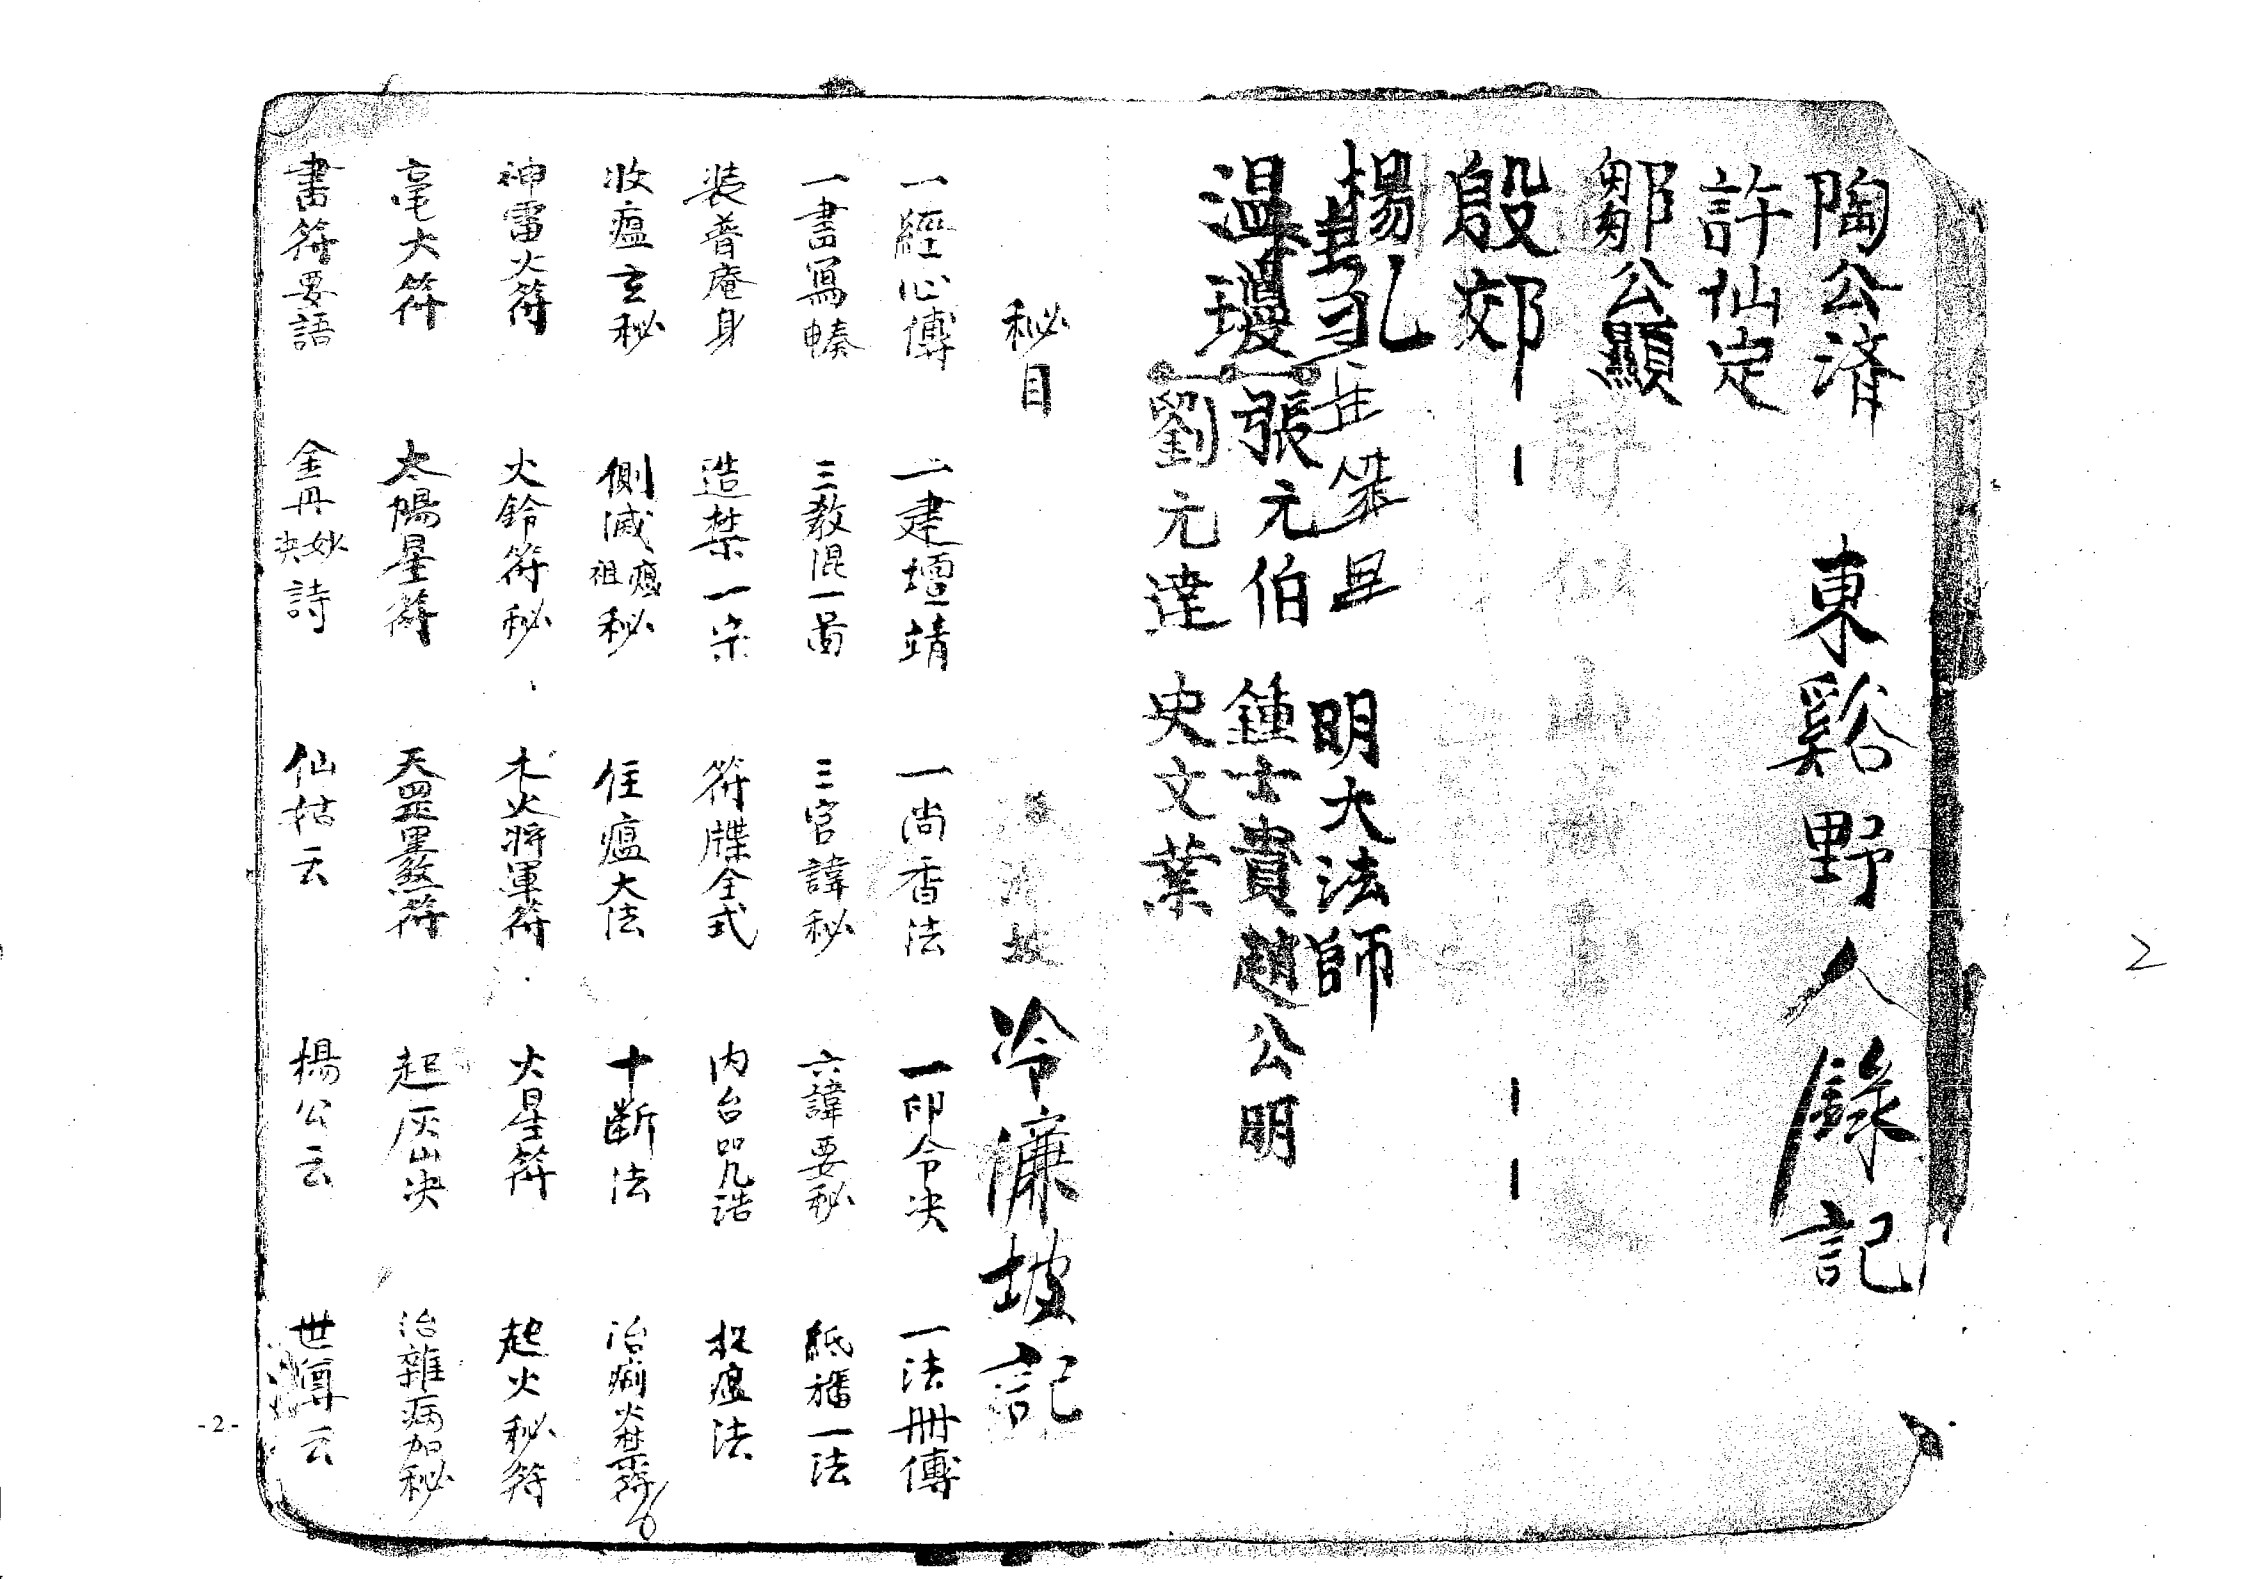 陶公済 東谿野人錄記
許仙定
鄒公顯
殷郊
楊
明大法師
温瓊 張元伯 鍾士貴 趙公明
劉元達 史文業
秘目
冷濂坡記
一經心傳 一建壇靖 一尚香法 一印令决 一法冊傳
一書寫幙 三教混一啚 三官諱秘 六諱要秘 紙旛一法
装普庵身 造禁一宗 符牒全式 内台咒誥 瘟法
收瘟玄秘 側滅瘟祖秘 住瘟大法 十断法 治痢火禁符
神雷火符 火鈴符秘 木火将軍符 火星符 起火秘符
亳大符 太陽星符 天罡黑煞符 起灰山决 治雜病加秘
書符要語 金丹妙决詩 仙姑云 楊公云 世尊云
2
-2-